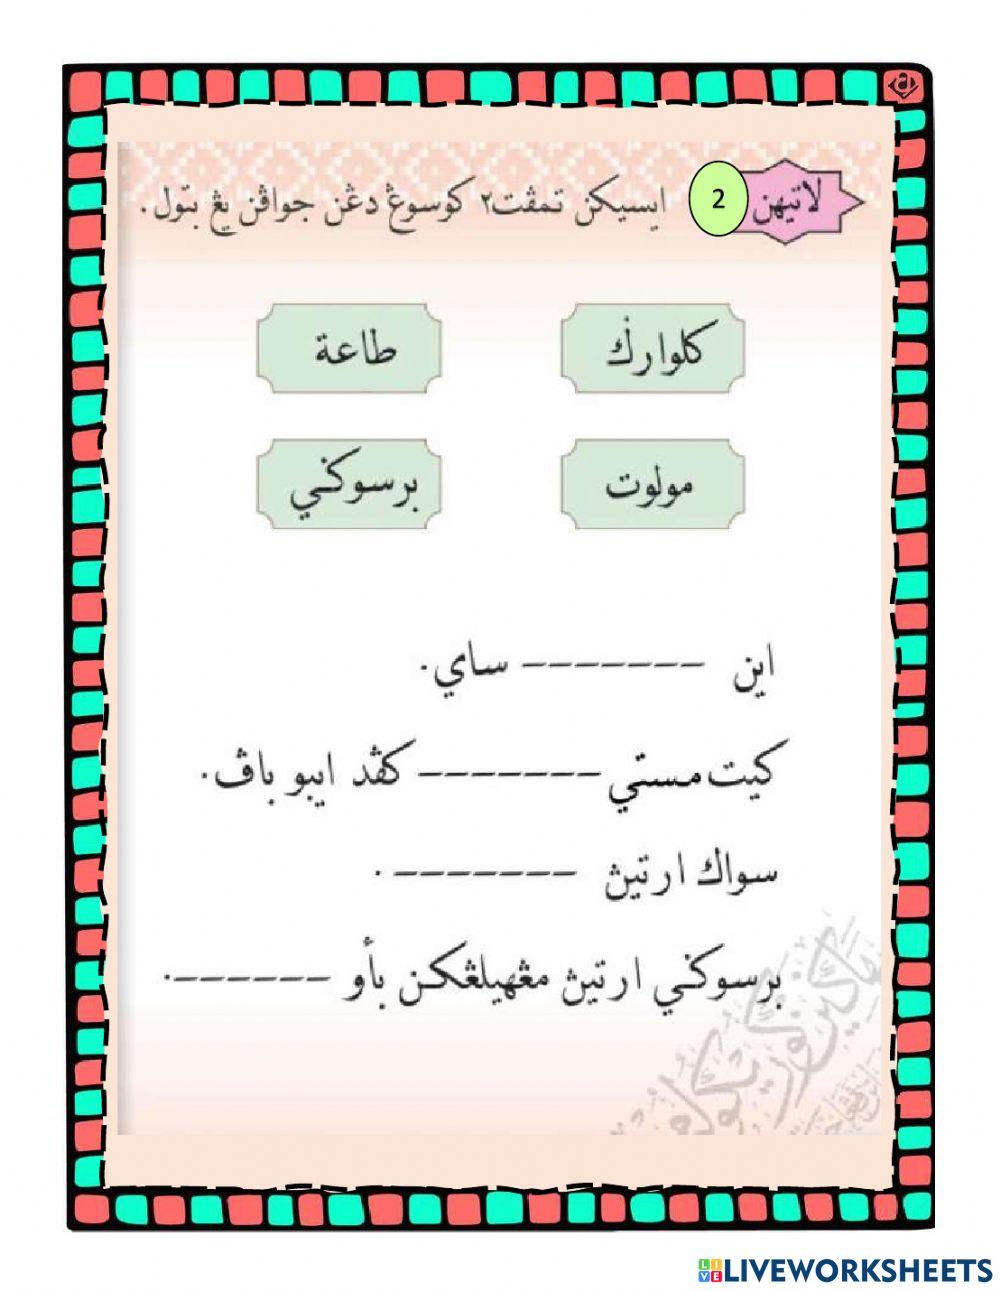 لاتيهن 2 ايسيکن تمڤت٢ کوسوڠ دڠن جواڤن يڠ بتول.
کلوارݢ
طاعة
مولوت
برسوݢي
اين ------- ساي.
کيت مستي ------- کڤد ايبو باڤ.
سواك ارتيڽ -------.
برسوݢي ارتيڽ مڠهيلڠکن بأو ------.
LIVEWORKSHEETS